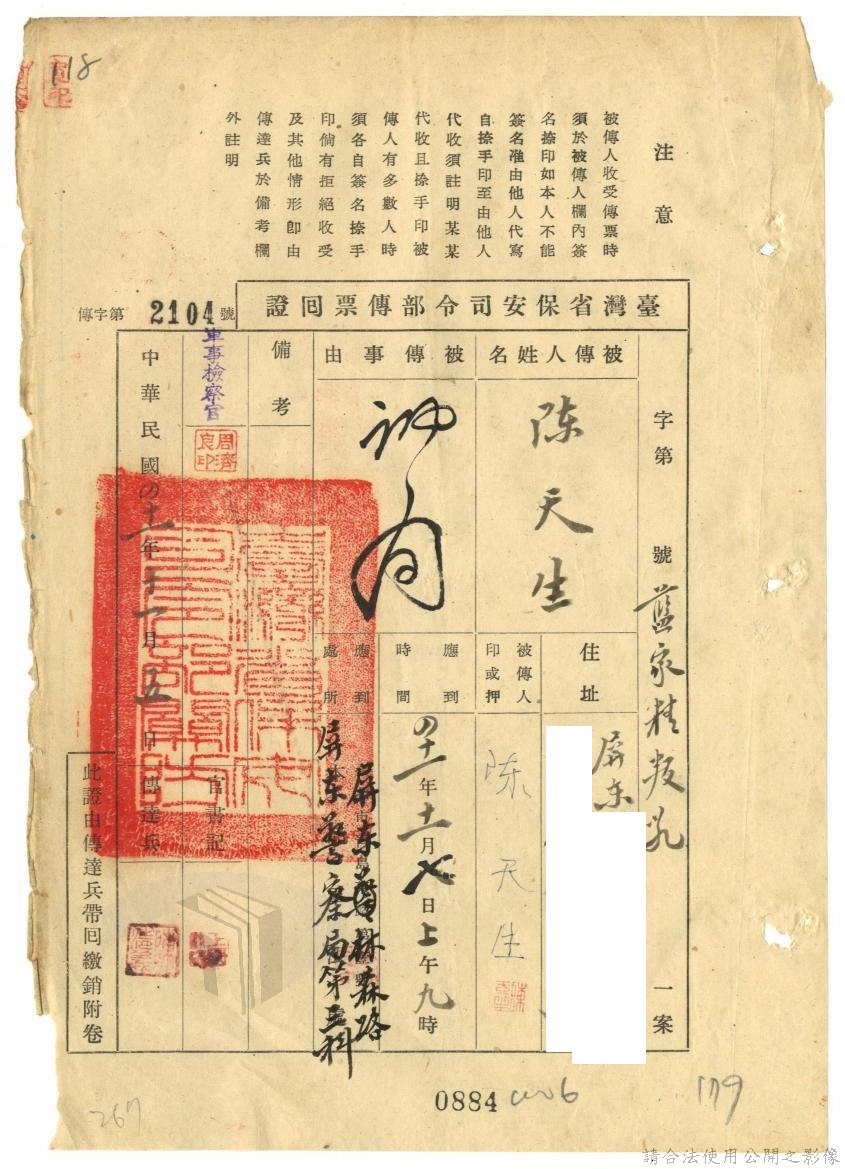 118
注意
被傳人收受傳票時
須於被傳人欄內簽
名捺印如本人不能
簽名准由他人代寫
自捺手印至由他人
代收須註明某某
代收且捺手印被
傳人有多數人時
須各自簽名捺手
印倘有拒絕收受
及其他情形卽由
傳達兵於備考欄
外註明
臺灣省保安司令部傳票回證
傳字第2104號
字第 號藍家精叛乱 一案
被傳人姓名
陈天生
住址
屏东
被傳人
印或押
陈天生
被傳事由
訊問
應到
時間
四十一年十一月七日上午九時
應到
處所
屏东警察局第三科
備考
軍事檢察官
書記官
中華民國四十一年十一月五日
傳達兵
此證由傳達兵帶回繳銷附卷
0884
179
267
請合法使用公開之影像